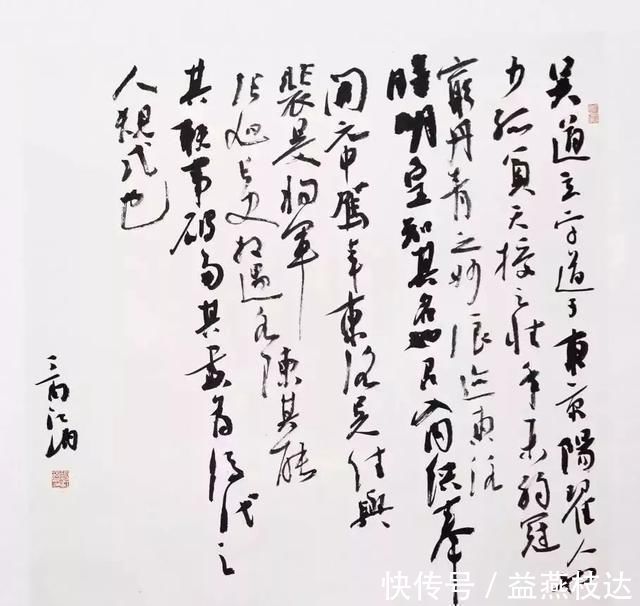 吴道玄字道子東京陽翟人也
少孤貧天授之性年未弱冠
窮丹青之妙浪迹東洛
時明皇知其名召入内供奉
開元中駕幸東洛吴生與
裴旻将軍
張旭長史相遇各陳其能
其軼事其畫為後代之
人規式也
快传号 / 益燕枝达